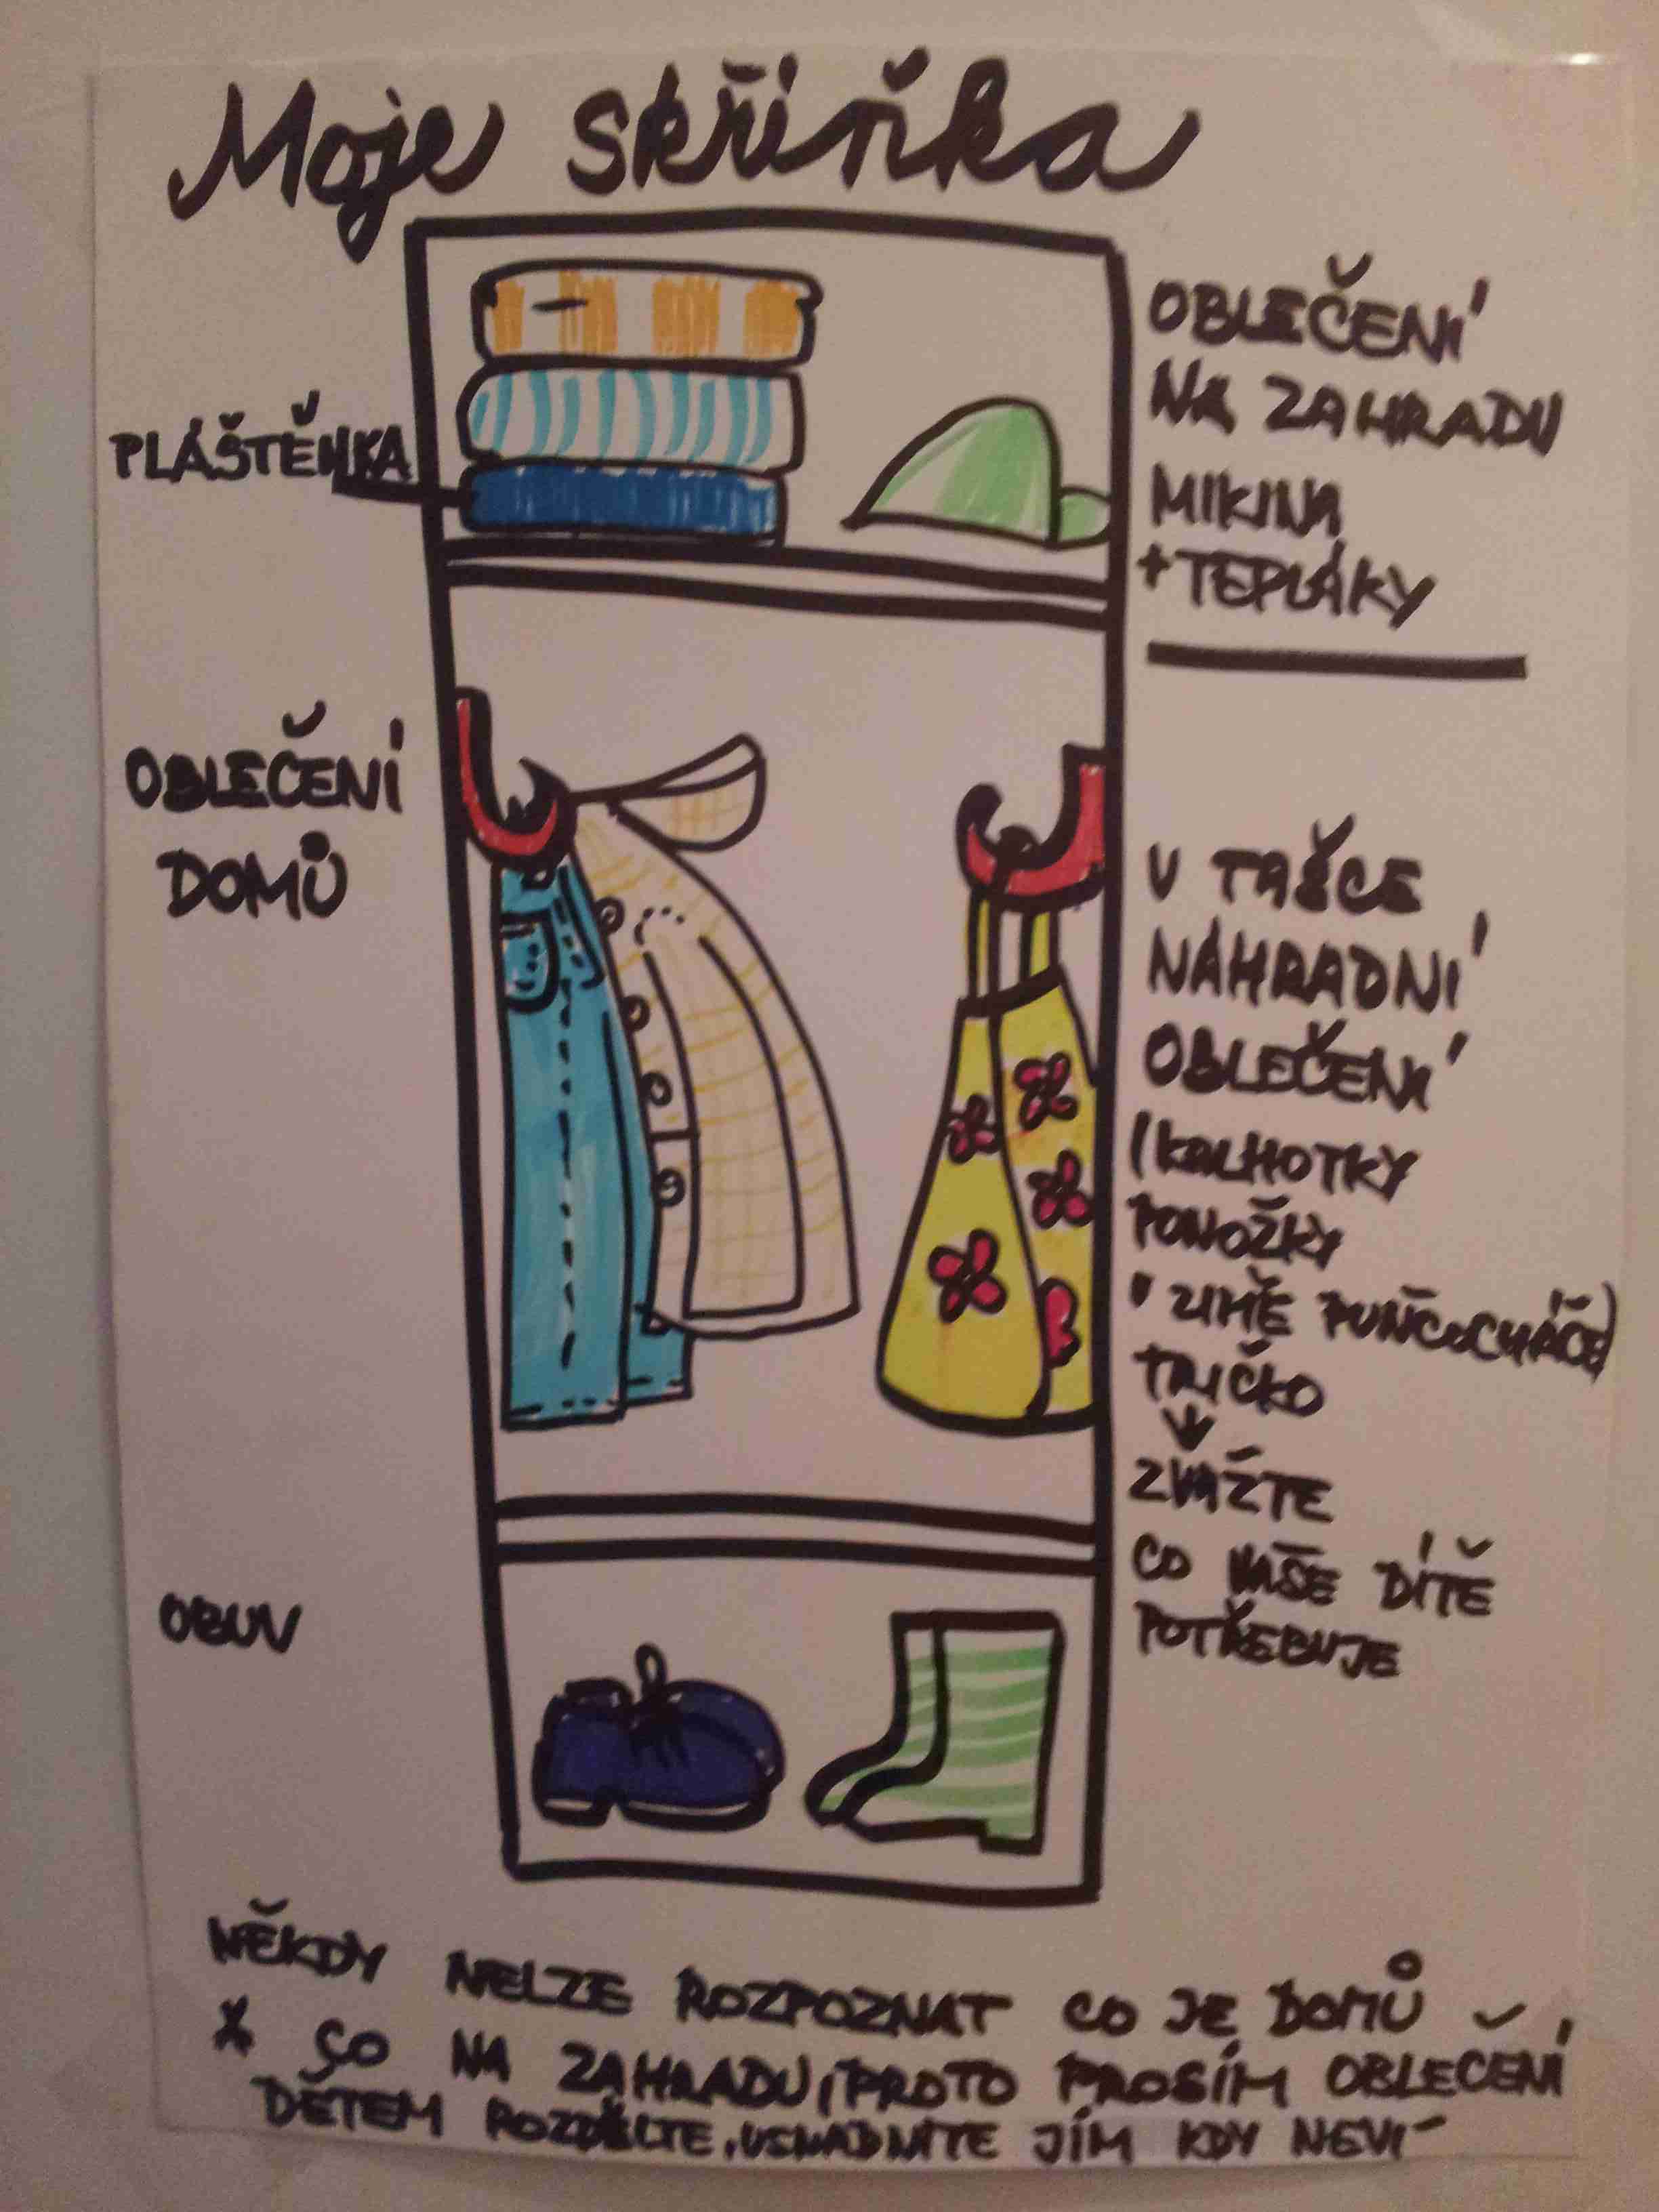 Moje skříňka
PLÁŠTĚNKA
OBLEČENÍ
NA ZAHRADU
MIKINA
+ TEPLÁKY
OBLEČENÍ
DOMŮ
V TAŠCE
NÁHRADNÍ
OBLEČENÍ
(KALHOTKY
PONOŽKY
V ZIMĚ PUNČOCHÁČE)
TRIČKO
ZVAŽTE
CO VAŠE DÍTĚ
POTŘEBUJE
OBUV
NĚKDY NELZE ROZPOZNAT CO JE DOMŮ
X CO NA ZAHRADU, PROTO PROSÍM OBLEČENÍ
DĚTEM ROZDĚLTE, USNADNÍTE JÍM KDY NEVÍ